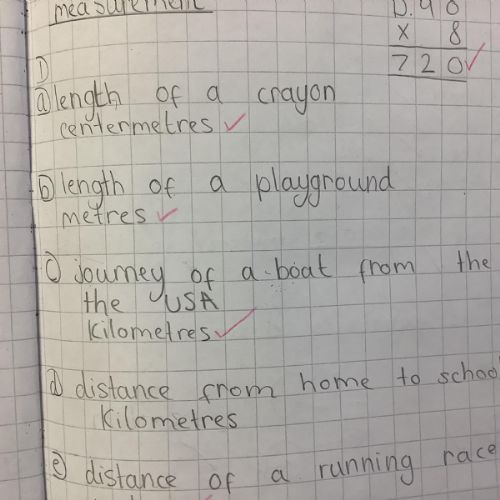 measurement
D. 90
x 8
720
1)
a) length of a crayon
centermetres
b) length of a playground
metres
c) journey of a boat from the
the USA
kilometres
d) distance from home to schoo
kilometres
e) distance of a running race